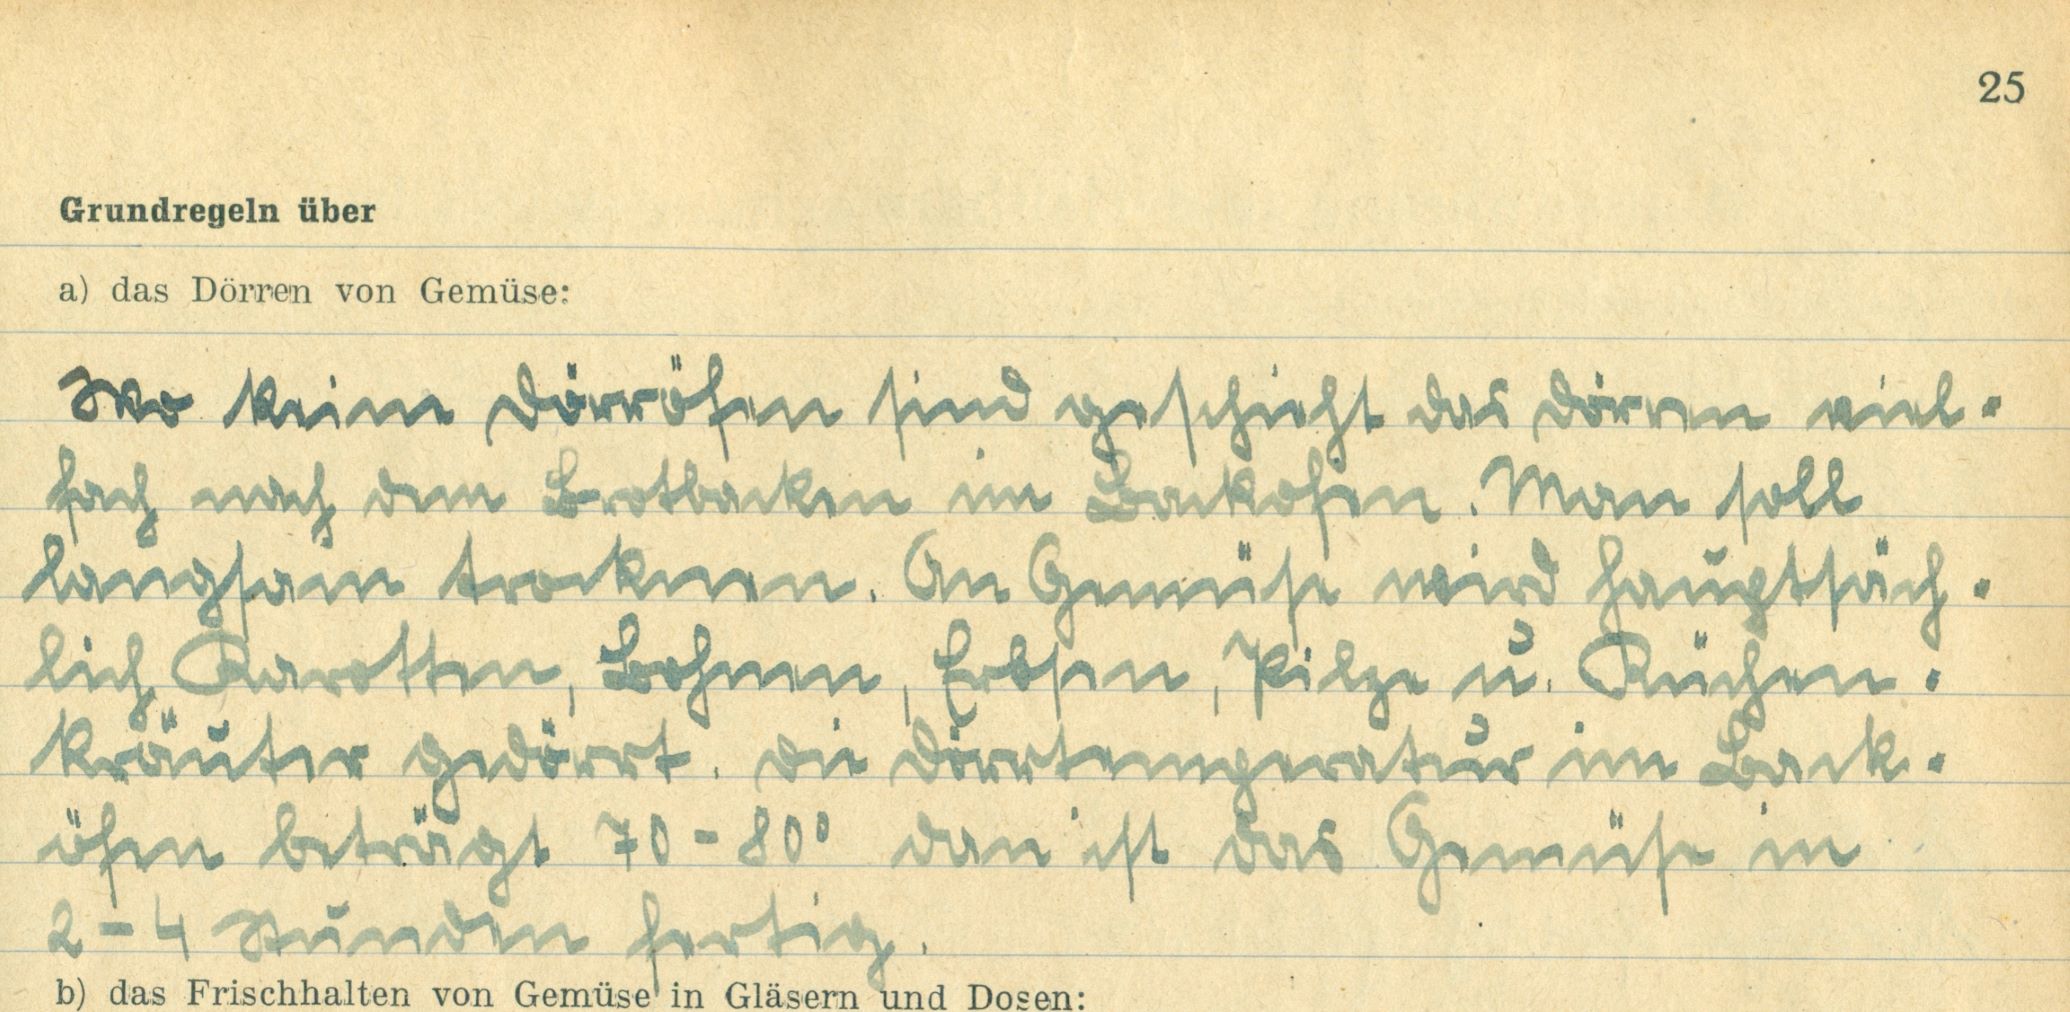 25
Grundregeln über
a) das Dörren von Gemüse:
Wo keine Dörröfen sind geschieht das Dörren viel-
fach nach dem Brotbacken im Backofen. Man soll
langsam trocknen. An Gemüse wird hauptsäch-
lich Karotten, Bohnen, Erbsen, Pilze u. Küchen-
kräuter gedörrt. Die Dörrtemperatur im Back-
öfen beträgt 70-80° dan ist das Gemüse in
2-4 Stunden fertig.
b) das Frischhalten von Gemüse in Gläsern und Dosen: